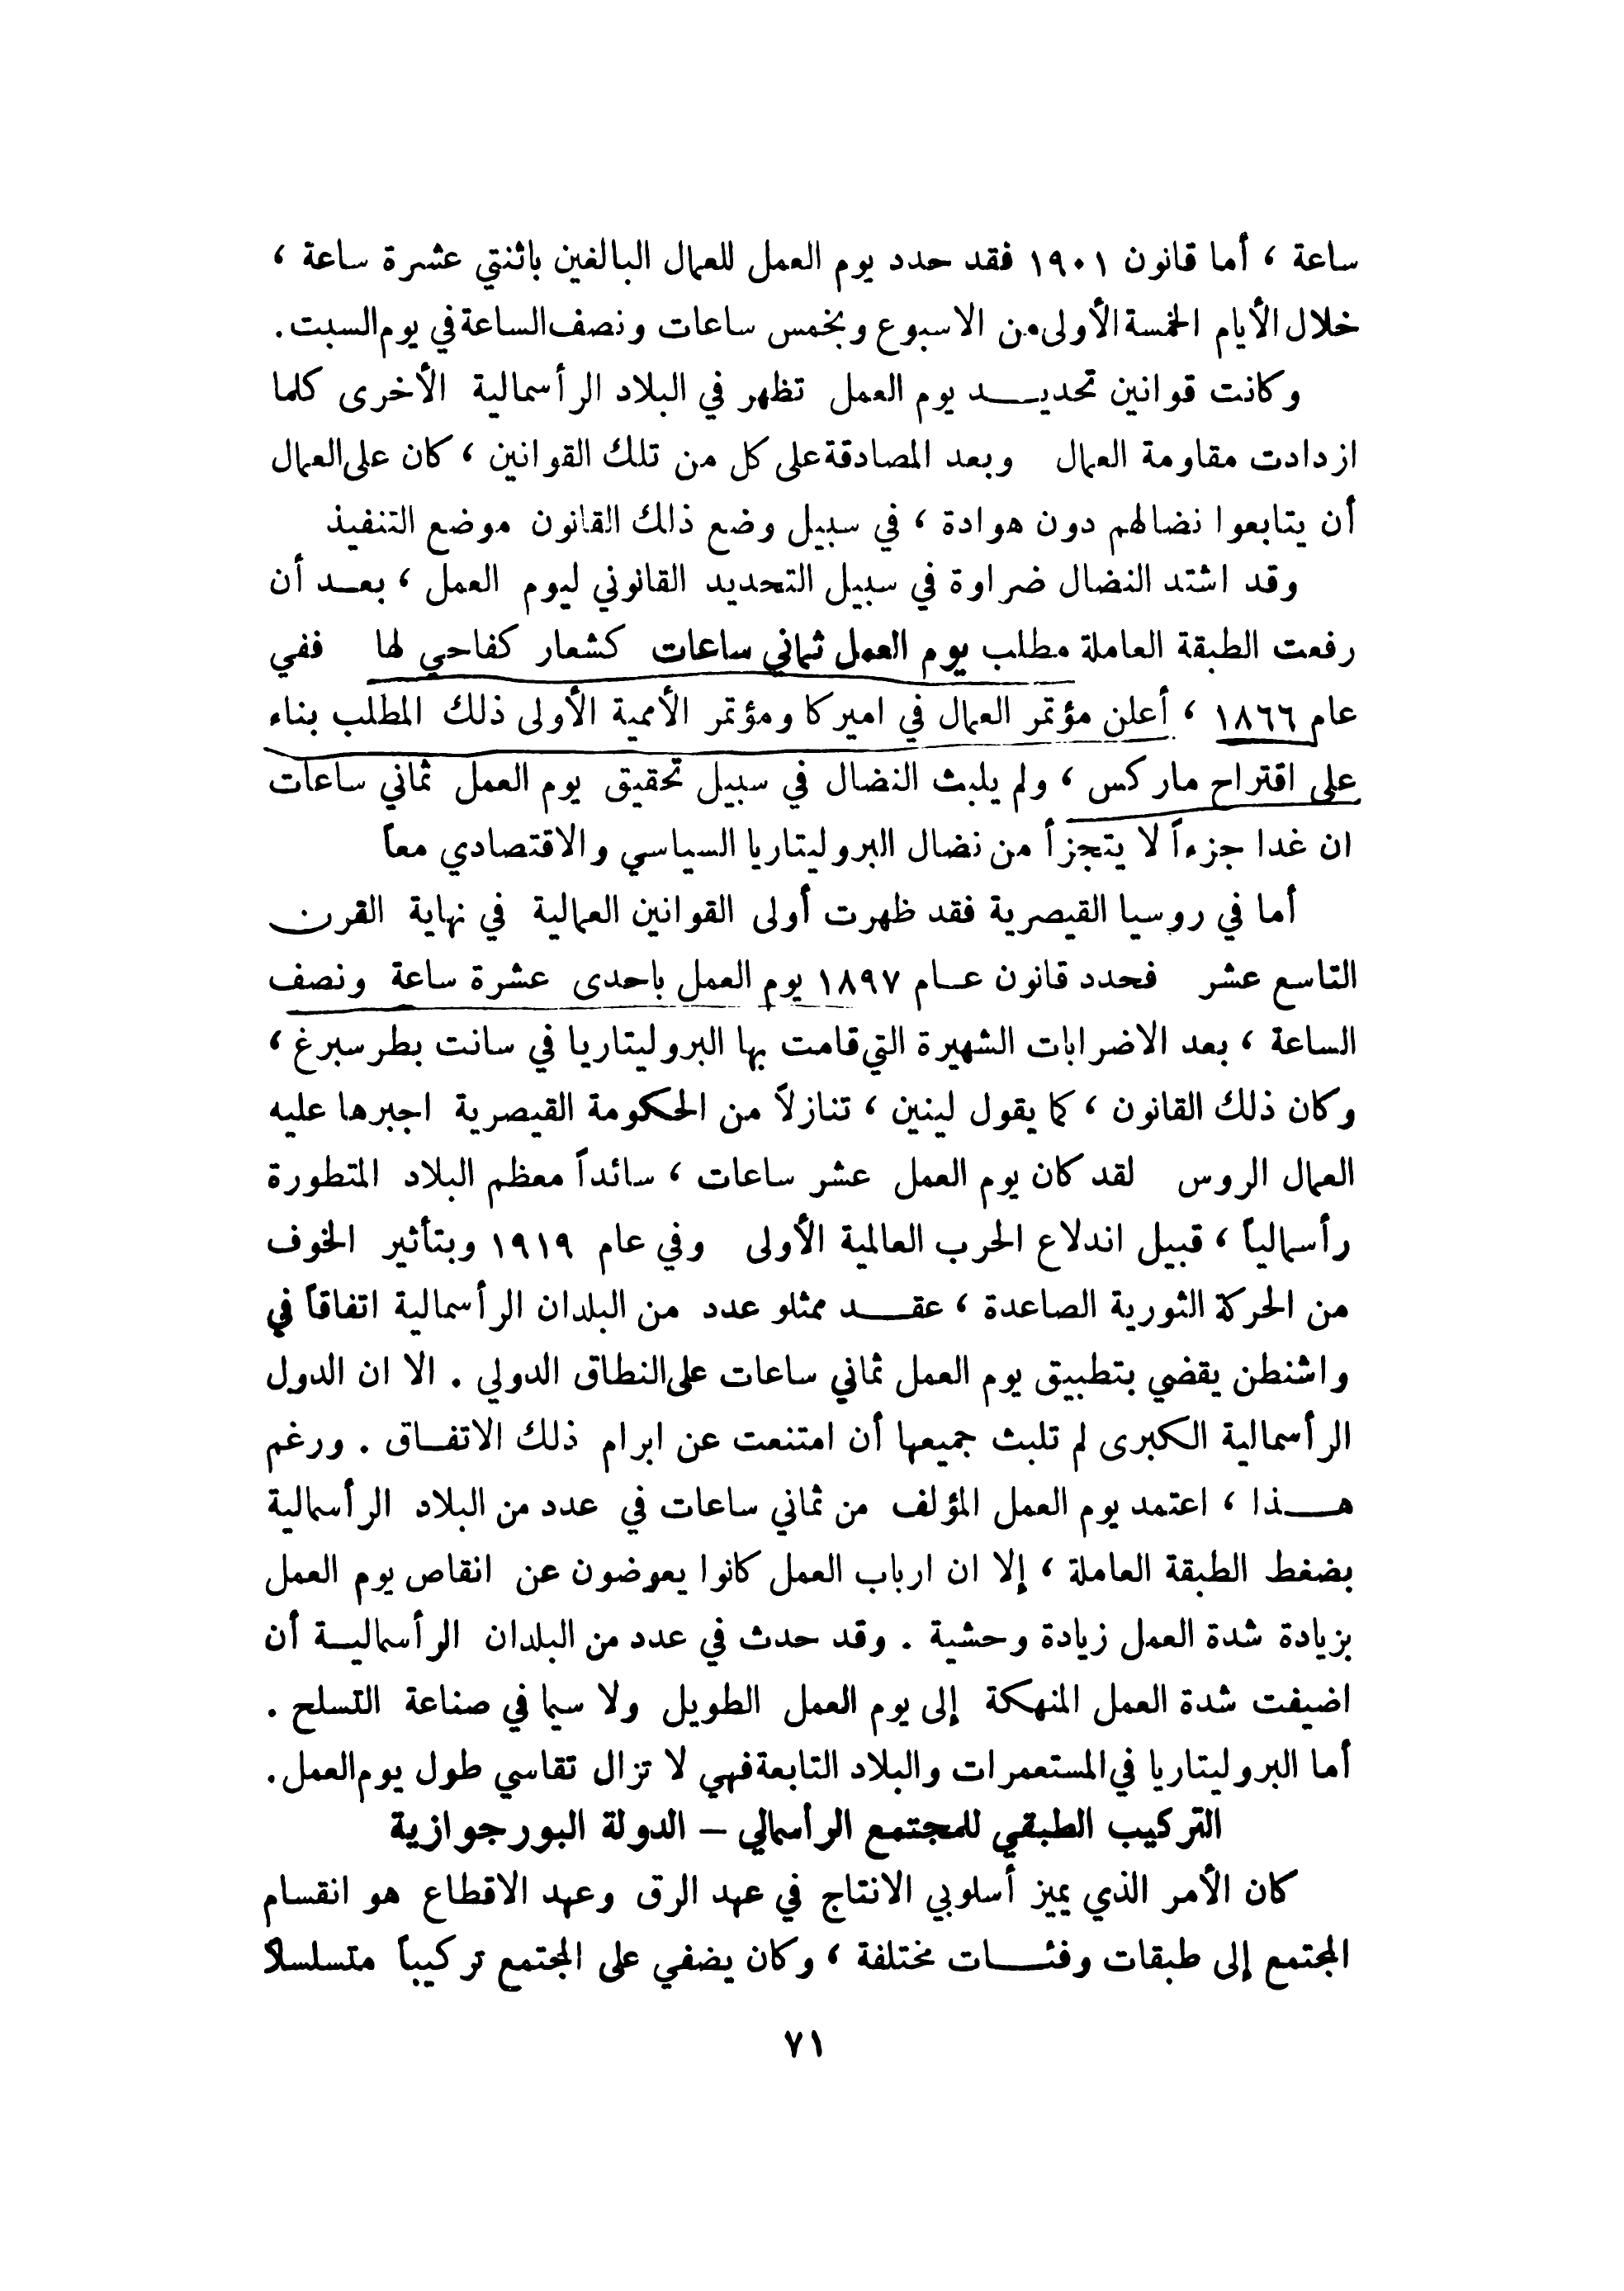 ساعة ، أما قانون ١٩٠١ فقد حدد يوم العمل للعمال البالغين باثنتي عشرة ساعة ،
خلال الأيام الخمسة الأولى من الاسبوع وبخمس ساعات ونصف الساعة في يوم السبت .
وكانت قوانين تحديـــد يوم العمل تظهر في البلاد الرأسمالية الأخرى كلما
ازدادت مقاومة العمال وبعد المصادقة على كل من تلك القوانين ، كان على العمال
أن يتابعوا نضالهم دون هوادة ، في سبيل وضع ذلك القانون موضع التنفيذ
وقد اشتد النضال ضراوة في سبيل التحديد القانوني ليوم العمل ، بعـد أن
رفعت الطبقة العاملة مطلب يوم العمل ثماني ساعات كشعار كفاحي لها ففي
عام ١٨٦٦ ، أعلن مؤتمر العمال في اميركا ومؤتمر الأممية الأولى ذلك المطلب بناء
على اقتراح ماركس ، ولم يلبث النضال في سبيل تحقيق يوم العمل ثماني ساعات
ان غدا جزءاً لا يتجزأ من نضال البروليتاريا السياسي والاقتصادي معاً
أما في روسيا القيصرية فقد ظهرت أولى القوانين العمالية في نهاية القرن
التاسع عشر فحدد قانون عـام ١٨٩٧ يوم العمل باحدى عشرة ساعة ونصف
الساعة ، بعد الاضرابات الشهيرة التي قامت بها البروليتاريا في سانت بطرسبرغ ،
وكان ذلك القانون ، كما يقول لينين ، تنازلاً من الحكومة القيصرية اجبرها عليه
العمال الروس لقد كان يوم العمل عشر ساعات ، سائداً معظم البلاد المتطورة
رأسمالياً ، قبيل اندلاع الحرب العالمية الأولى وفي عام ١٩١٩ وبتأثير الخوف
من الحركة الثورية الصاعدة ، عقـــد ممثلو عدد من البلدان الرأسمالية اتفاقاً في
واشنطن يقضي بتطبيق يوم العمل ثماني ساعات على النطاق الدولي . الا ان الدول
الرأسمالية الكبرى لم تلبث جميعها أن امتنعت عن ابرام ذلك الاتفـاق . ورغم
هـــذا ، اعتمد يوم العمل المؤلف من ثماني ساعات في عدد من البلاد الرأسمالية
بضغط الطبقة العاملة ، إلا ان ارباب العمل كانوا يعوضون عن انقاص يوم العمل
بزيادة شدة العمل زيادة وحشية . وقد حدث في عدد من البلدان الرأسماليـة أن
اضيفت شدة العمل المنهكة إلى يوم العمل الطويل ولا سيما في صناعة التسلح .
أما البروليتاريا في المستعمرات والبلاد التابعة فهي لا تزال تقاسي طول يوم العمل .
التركيب الطبقي للمجتمع الرأسمالي – الدولة البورجوازية
كان الأمر الذي يميز أسلوبي الانتاج في عهد الرق وعهد الاقطاع هو انقسام
المجتمع إلى طبقات وفئـــات مختلفة ، وكان يضفي على المجتمع تركيباً متسلسلاً
٧١